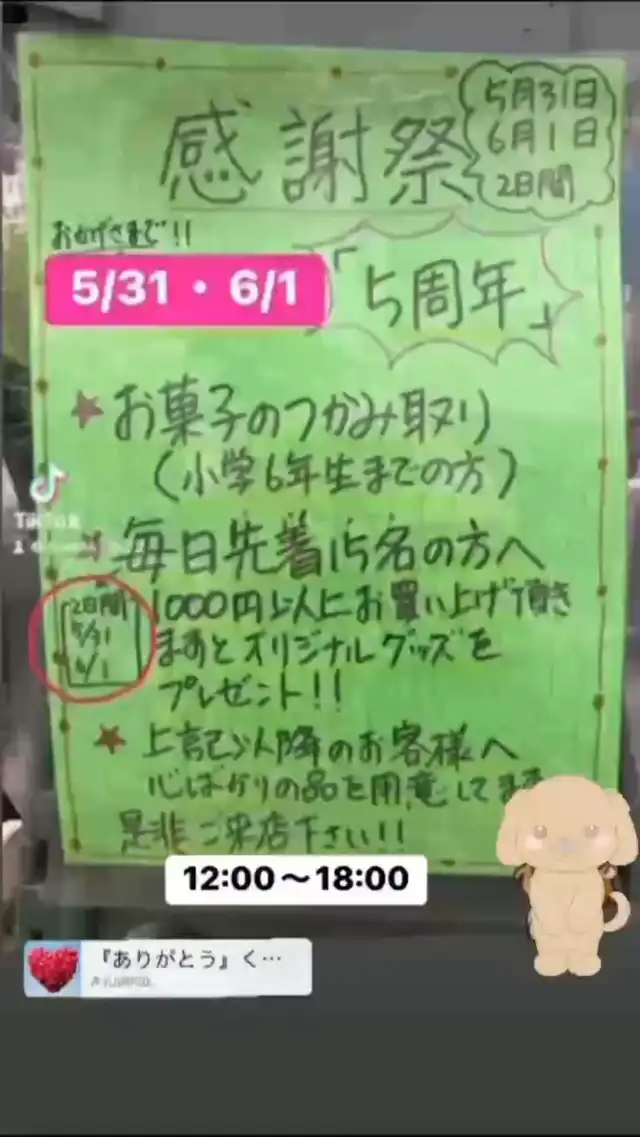 感謝祭
5月31日
6月1日
2日間
おかげさまで!!
5/31・6/1
「5周年」
★お菓子のつかみ取り
(小学6年生までの方)
毎日先着15名の方へ
2日間
5/31
6/1
1000円以上お買い上げ頂き
ますとオリジナルグッズを
プレゼント!!
★上記以降のお客様へ
心ばかりの品を用意してます
是非ご来店下さい!!
12:00〜18:00
『ありがとう』く…
TikTok